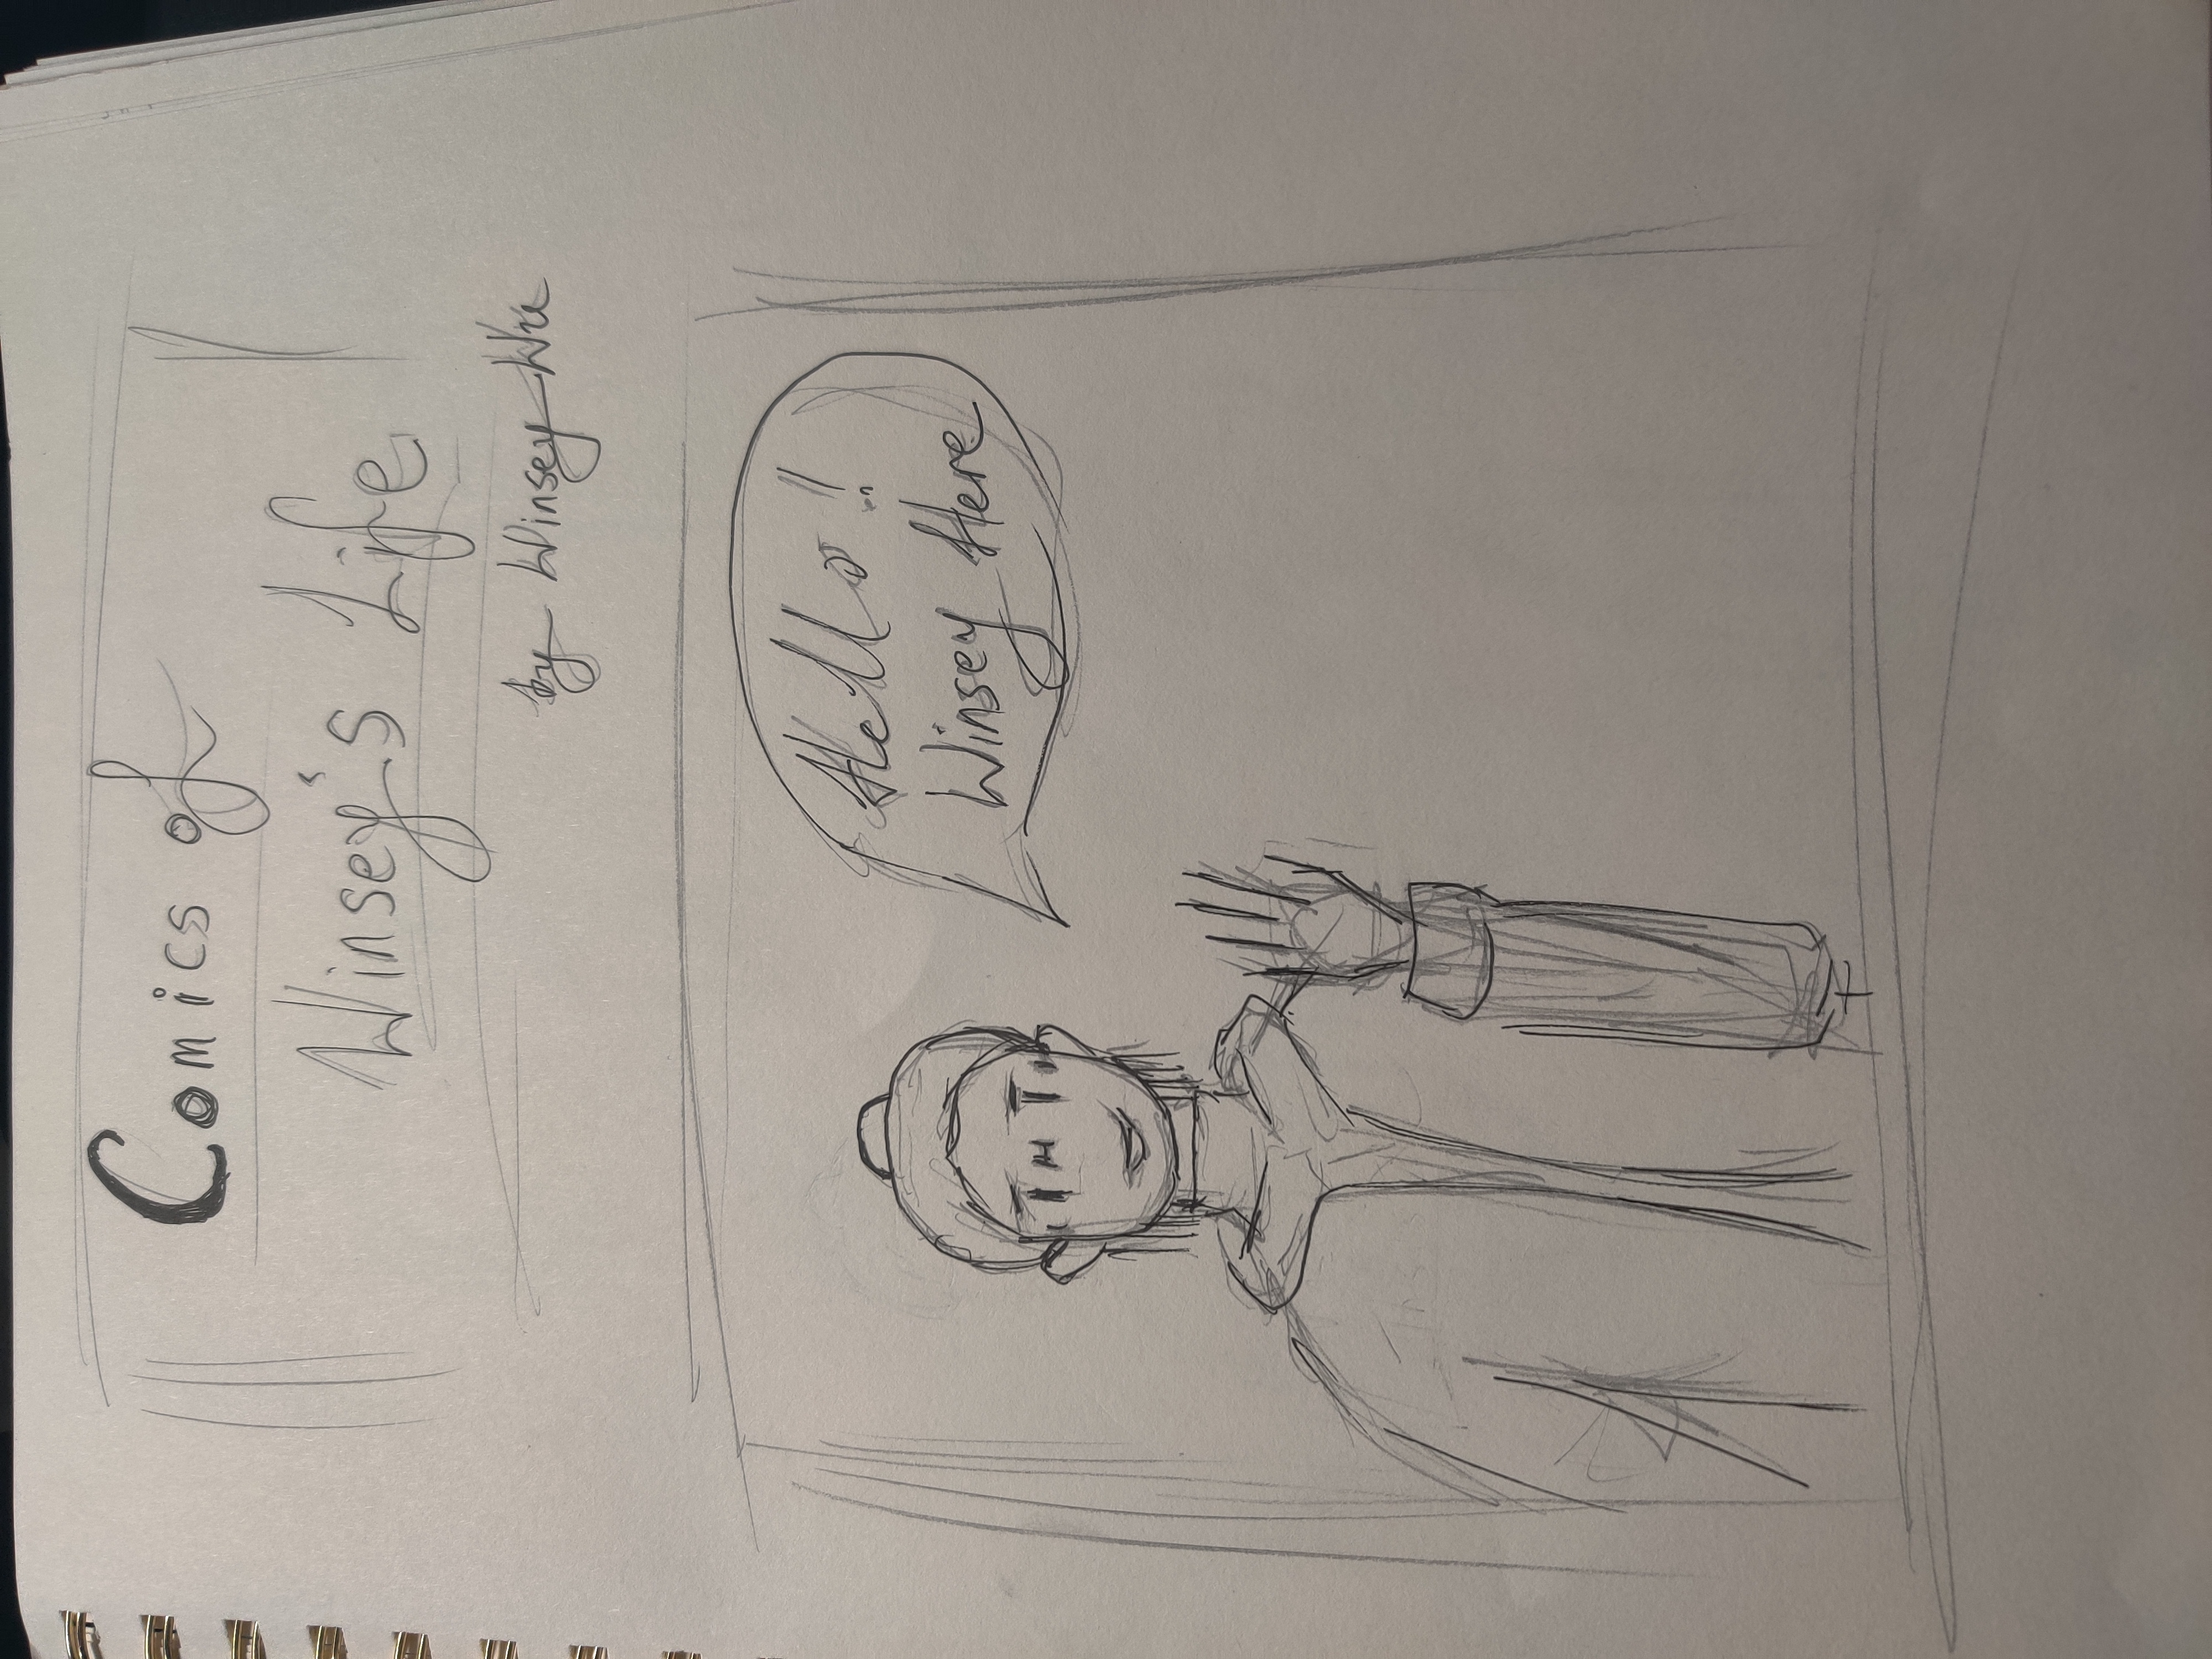 Comics of
Winsey's Life
by Winsey Wu
Hello!
Winsey Here